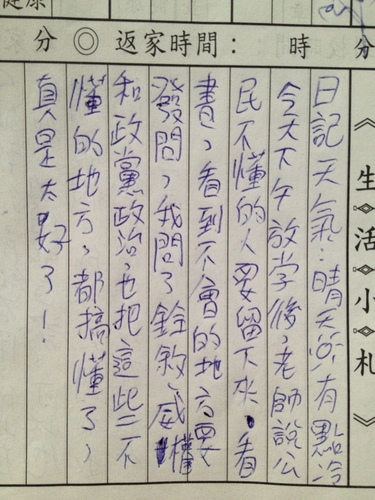 健康
分 ◎ 返家時間： 時 分
《生活小札》
日記天氣：晴天有點冷
今天下午放學後，老師說公
民不懂的人要留下來，看
書，看到不會的地方要
發問，我問了銓敘、威權
和政黨政治，也把這些不
懂的地方，都搞懂了，
真是太好了！